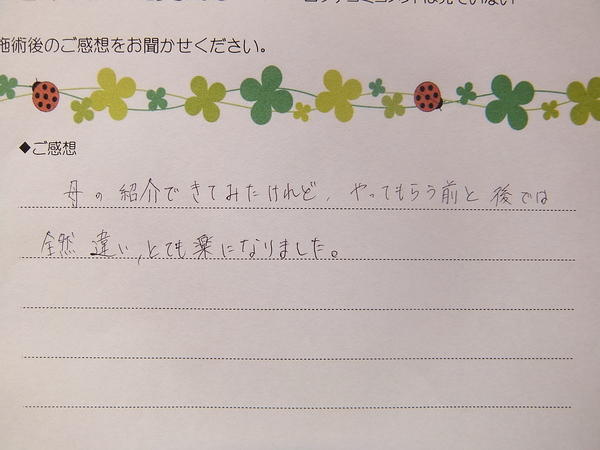 施術後のご感想をお聞かせください。
◆ご感想
母の紹介できてみたけれど、やってもらう前と後では
全然違い、とても楽になりました。